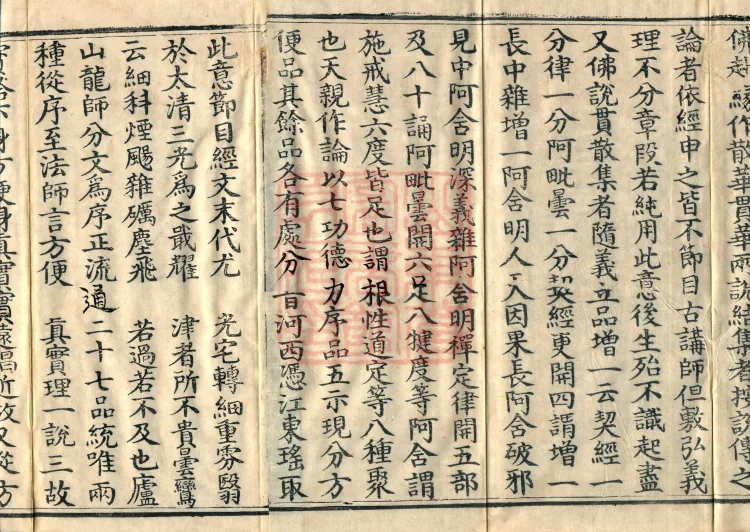 佛赴緣作散華貫華兩說結集者按說傳之
論者依經申之皆不節目古講師但敷弘義
理不分章段若純用此意後生殆不識起盡
又佛說貫散集者隨義立品增一云契經一
分律一分阿毗曇一分契經更開四謂增一
長中雜增一阿含明人入因果長阿含破邪
見中阿含明深義雜阿含明禪定律開五部
及八十誦阿毗曇開六足八犍度等阿含謂
施戒慧六度皆足也謂根性道定等八種聚
也天親作論以七功德力序品五示現分方
便品其餘品各有處分昔河西憑江東瑤取
此意節目經文末代尤 光宅轉細重雰翳
於太清三光爲之戢耀 津者所不貴曇鸞
云細科煙颺雜礪塵飛 若過若不及也廬
山龍師分文爲序正流通二十七品統唯兩
種從序至法師言方便 真實理一說三故
身方便身真實實遠唱近故又從方